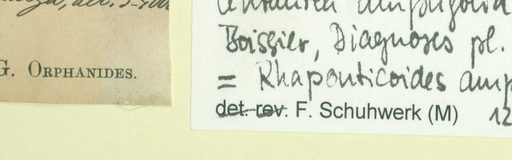 G. ORPHANIDES.
Centaurea amp
Boissier, Diagnoses pl.
= Rhaponticoides amp
det. rev. F. Schuhwerk (M) 12